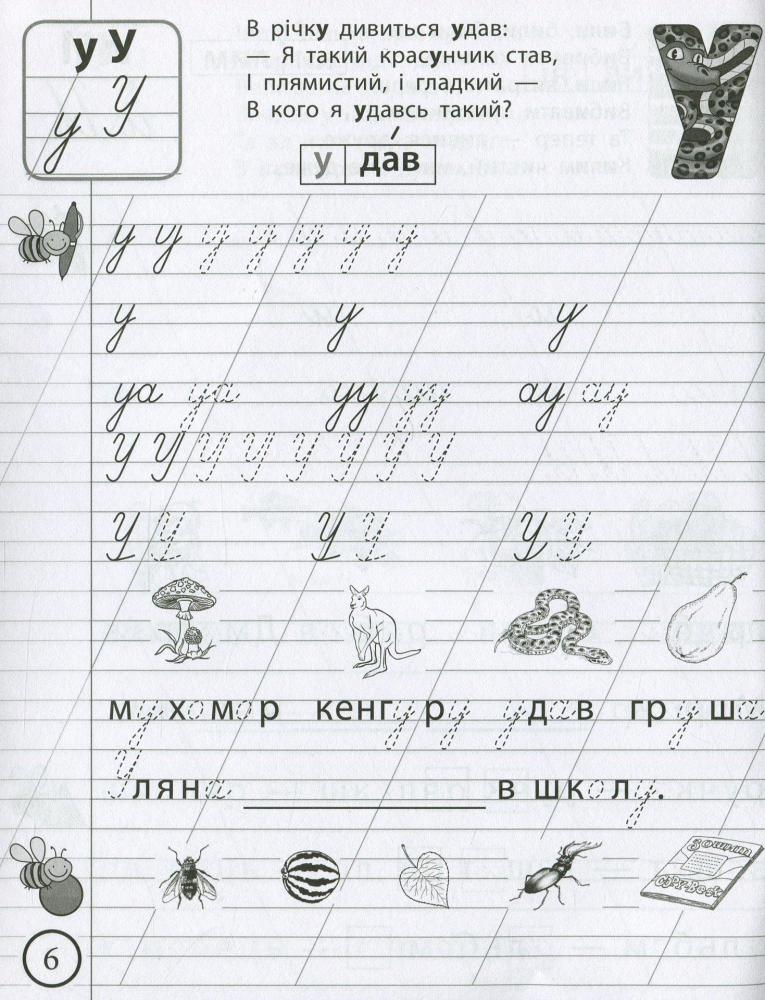 у У
у У
В річку дивиться удав:
— Я такий красунчик став,
І плямистий, і гладкий —
В кого я удавсь такий?
у дав
у у у у у у у
у у у
уа уа уу уу ау ау
У У У У У У У У
У У У У У У
мухомор кенгуру удав груша
Уляна ____ в школу.
Зошит
CopyBook
6